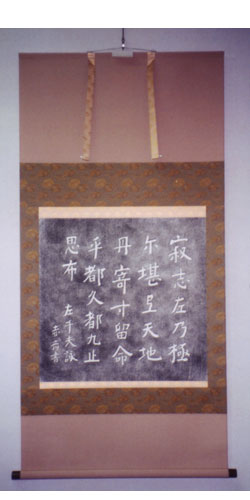 寂志左乃極
尓堪呈天地
丹寄寸留命
乎都久都九止
思布
左千夫詠
赤彦書